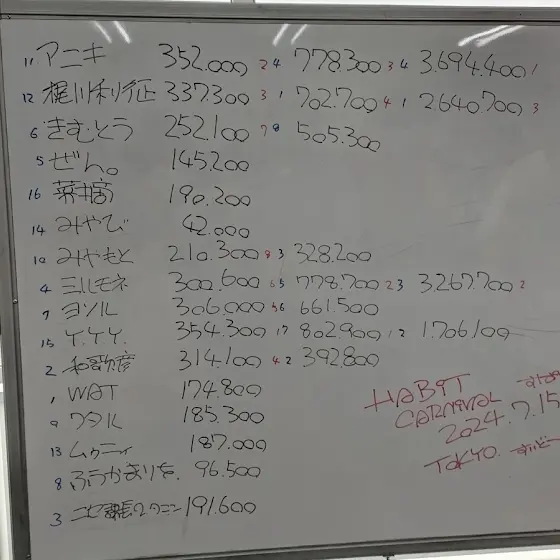 11 アニキ 352.000 2 4 778.300 3 4 3.694.400 1
12 梶川利征 337.300 3 1 702.700 4 1 2.640.700 3
6 きむとう 252.100 7 8 505.300
5 ぜん。 145.200
16 190.200
14 みやび 42.000
10 みやもと 210.300 8 3 328.200
4 ミルモネ 300.600 6 5 778.700 2 3 3.267.700 2
7 ヨソル 306.000 5 6 661.500
15 Y.Y.Y. 354.300 1 7 802.900 1 2 1.706.100
2 和歌彦 314.100 4 2 392.800
1 WAT 174.800
9 ワタル 185.300
13 ムゥニィ 187.000
8 ふうかまりを. 96.500
3 ニセ 191.600
HABIT
CARNIVAL
2024.7.15
TOKYO.